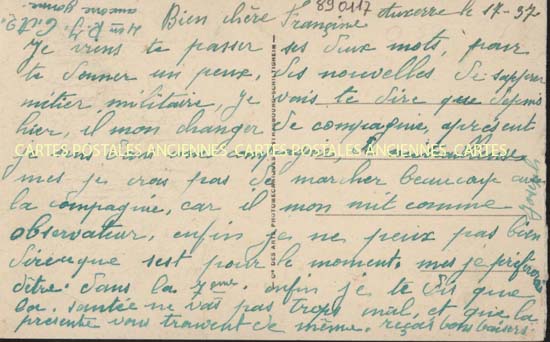 890117
Auxerre le 17-37
Bien chère Françine
4em R.I.
Je viens te passer ses deux mots, pour
te donner un peux, dis nouvelles di sapper
métier militaire, Je vais te dire que depuis
hier, il mon changer de compagnie, aprésent
CARTES POSTALES ANCIENNES CARTES POSTALES ANCIENNES CARTES POSTALES ANCIENNES CARTES
mes je crois pas de marcher beaucoup avec
la compagnie, car il mon mit comme
observateur, enfin je ne peux pas bien
dire que sest pour le moment. mes je préfèrerai
dître dans la 7eme. enfin je te dis que
la santée ne vas pas trops mal, et que la
présente vous trouvent de même. reçois bons baisers.
Cie DES ARTS PHOTOMECANIQUES STRASBOURG-SCHILTIGHEIM